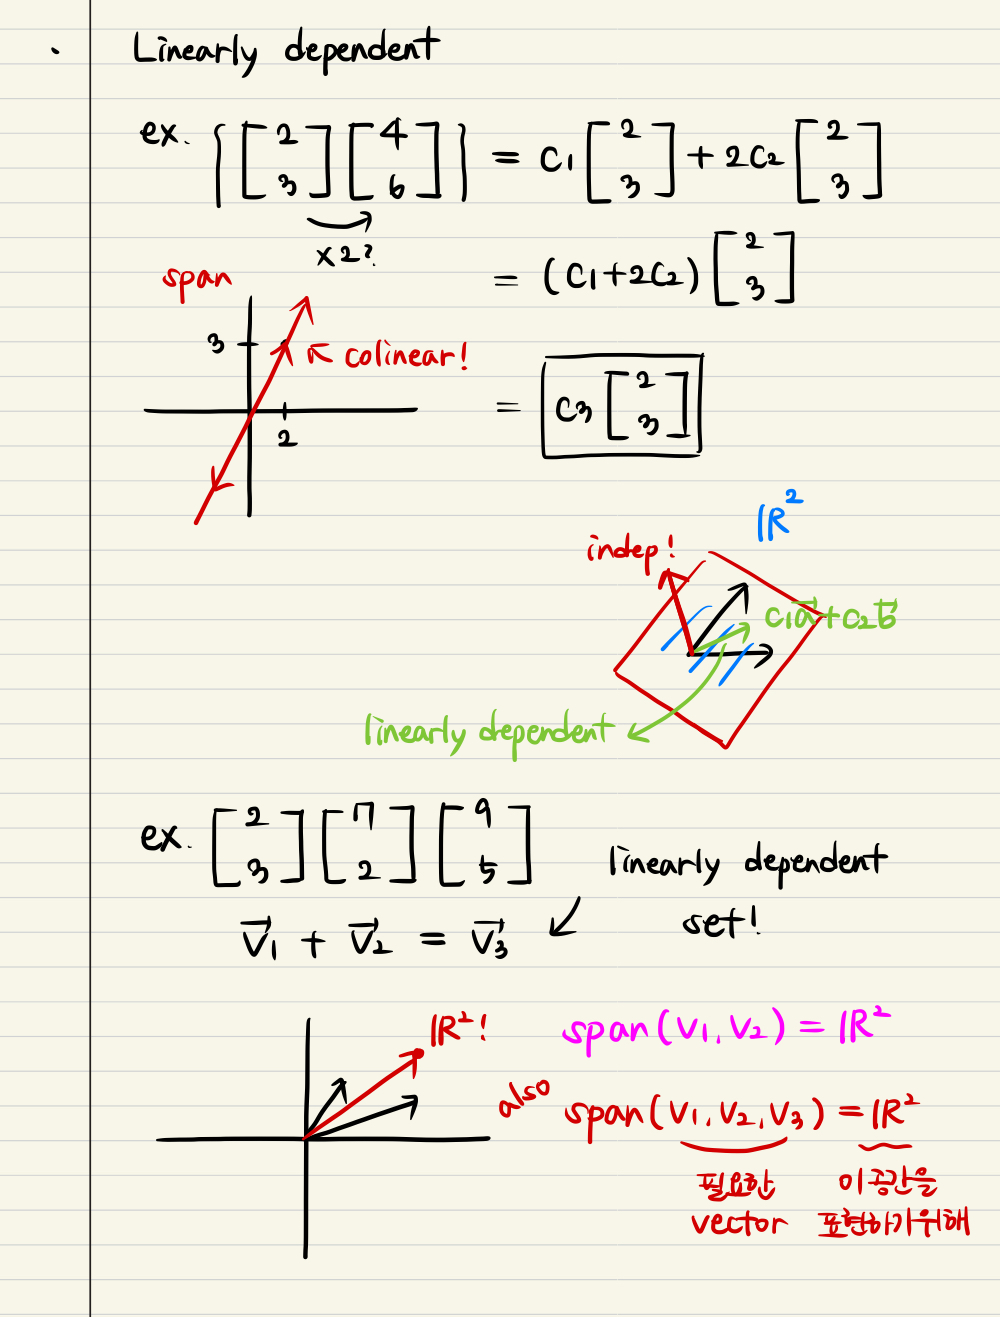 · Linearly dependent
ex. { [2 3] [4 6] } = C1 [2 3] + 2C2 [2 3]
x2?
= (C1+2C2) [2 3]
= C3 [2 3]
span
3
colinear!
2
ℝ²
indep!
C1a⃗+C2b⃗
linearly dependent
ex. [2 3] [7 2] [9 5]
linearly dependent
set!
v⃗1 + v⃗2 = v⃗3
ℝ²!
span(v1, v2) = ℝ²
also span(v1, v2, v3) = ℝ²
필요한 이 공간을
vector 표현하기위해